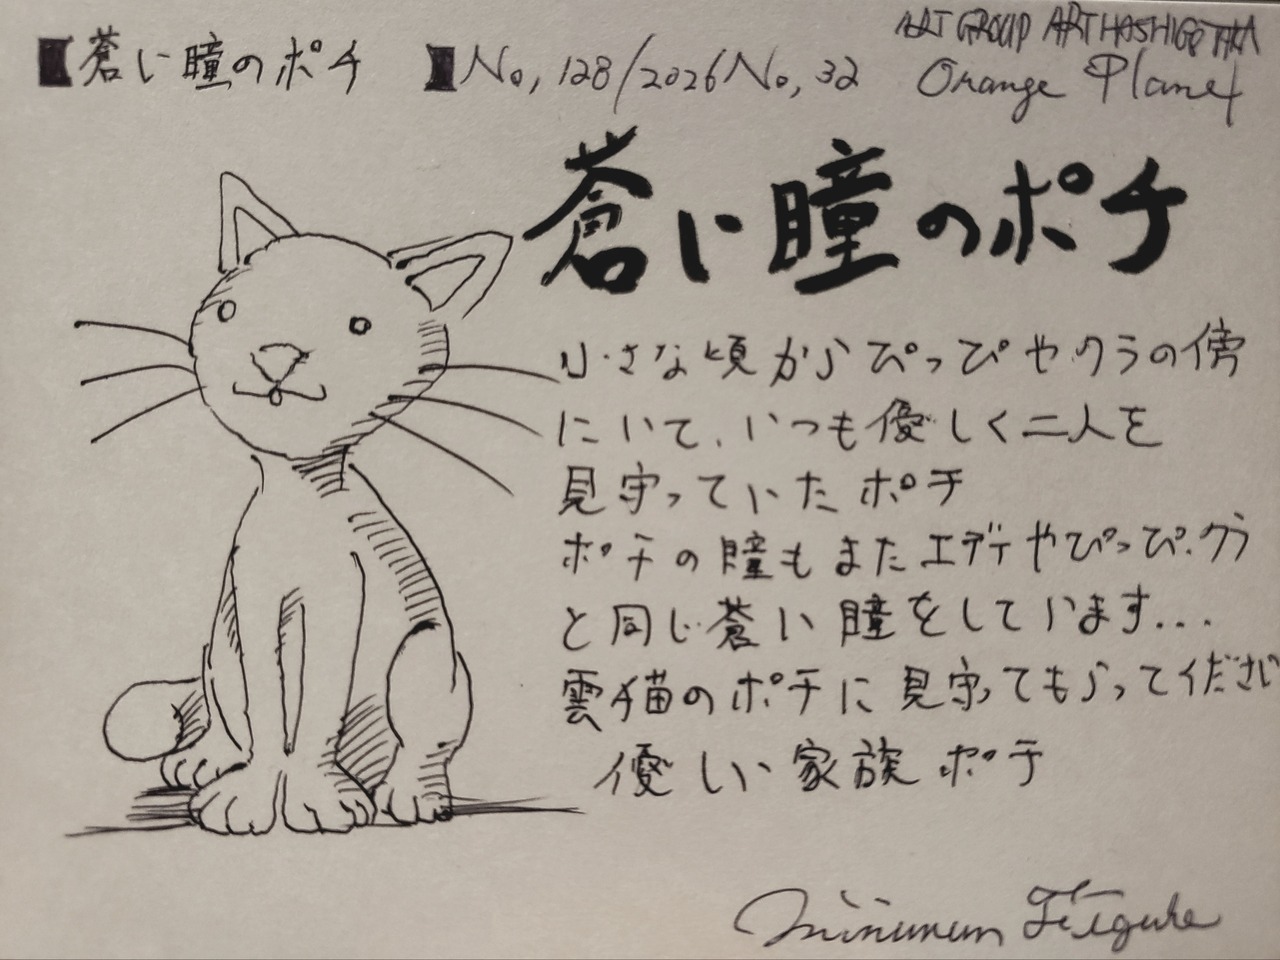 ■蒼い瞳のポチ ■No, 128/2026 No, 32
ART GROUP ART HASHIGOTAKA
Orange Planet
蒼い瞳のポチ
小さな頃からぴっぴやクラの傍
にいて、いつも優しく二人を
見守っていたポチ
ポチの瞳もまたエディやぴっぴ、クラ
と同じ蒼い瞳をしています...
雲猫のポチに見守ってもらってください
優しい家族ポチ
Minimum Figure